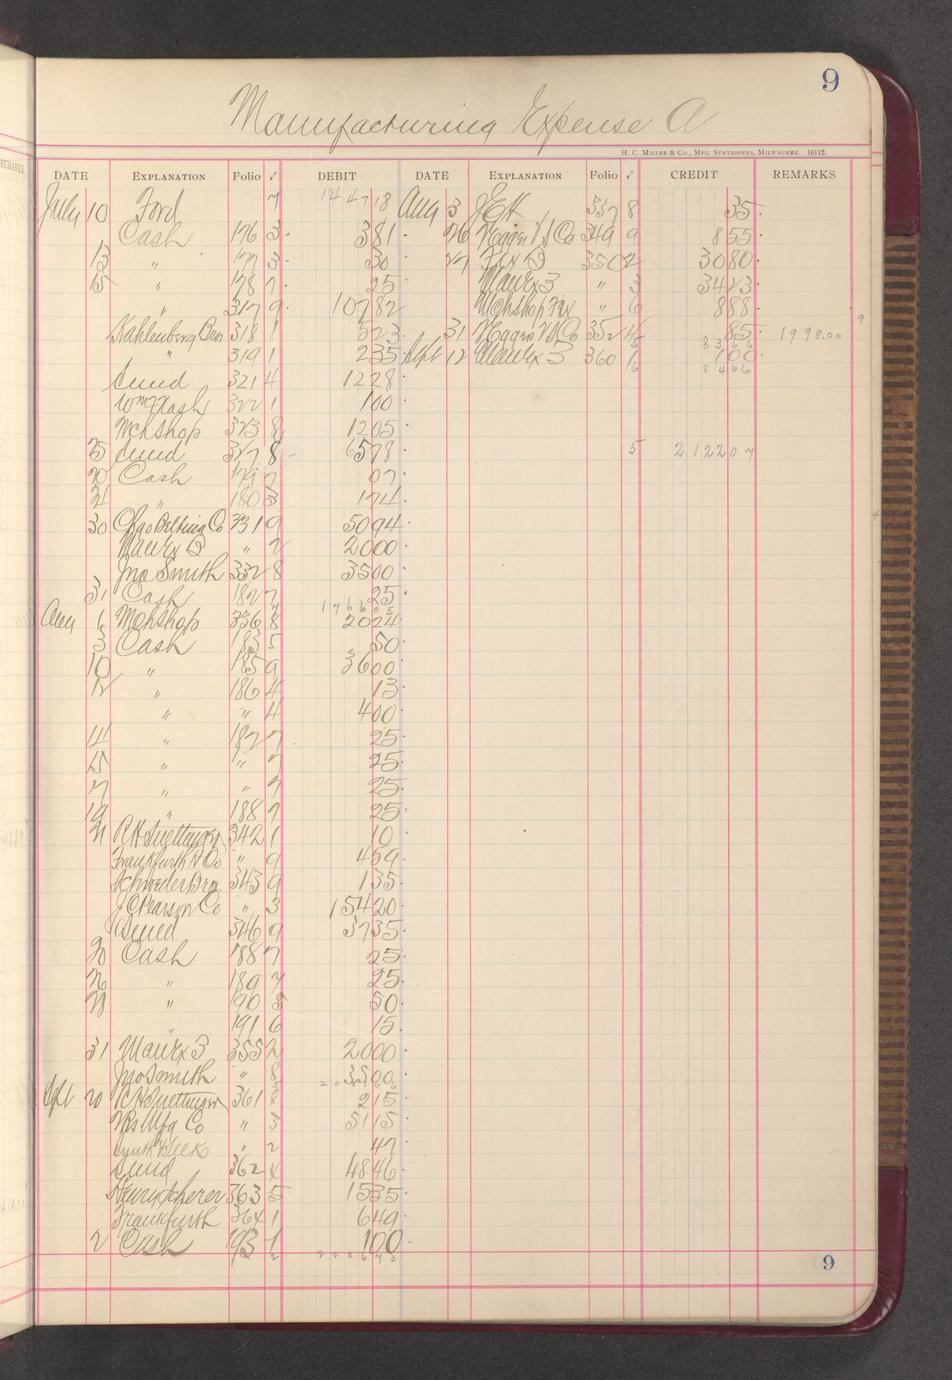 9
Manufacturing Expense A
H. C. MILLER & CO., MFG. STATIONERS, MILWAUKEE. 16112.
DATE EXPLANATION Folio √ DEBIT DATE EXPLANATION Folio √ CREDIT REMARKS
July 10 Ford 7 1447 18 Aug 3 337 8 35
Cash 176 3 3 81 26 Co 349 9 8 55
13 " 177 3 30 27 350 2 30 80
15 " 178 7 25 " 3 34 23
" 317 9 107 82 Mchshop " 6 8 88
Kahlenberg Bros 318 1 5 23 31 Co 352 85 1998.00
" 319 1 2 35 Sept 12 360 1 00
Sund 321 4 12 28
Wm Nash 322 1 1 00
Mchshop 323 8 12 05
25 Sund 327 8 65 78 5 2122 07
20 Cash 179 7 07
21 " 180 3 1 74
30 Chgo Belting Co 331 9 50 94
" 2 20 00
Jno Smith 332 8 35 00
31 Cash 182 7 25
1766 05
Aug 1 Mchshop 336 8 20 24
3 Cash 183 5 50
10 " 185 9 36 00
12 " 186 4 13
" " 4 4 00
14 " 187 7 25
15 " " 7 25
17 " " 7 25
19 " 188 7 25
21 342 1 10
Frankfurth H Co " 9 4 59
Schroeder Bros 343 9 1 35
J C Pearson Co " 3 154 20
Sund 346 9 37 35
20 Cash 188 7 25
26 " 189 7 25
28 " 190 5 50
" 191 6 15
31 355 2 20 00
Jno Smith " 8 35 00
Sept 20 361 8 2 15
Mfg Co " 3 51 15
" 2 47
Sund 362 4 48 46
363 5 15 35
Frankfurth 364 1 6 49
2 Cash 193 1 1 00
9